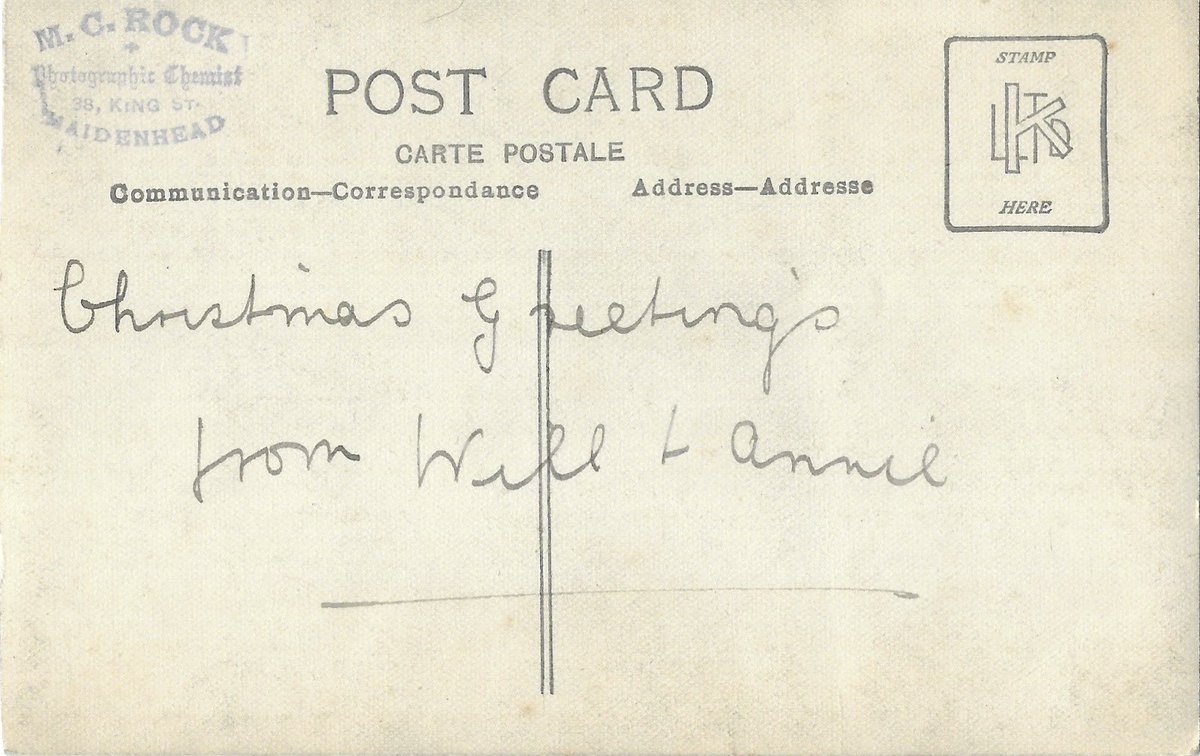 M. C. ROCK
Photographic Chemist
38, KING ST.
MAIDENHEAD
POST CARD
CARTE POSTALE
Communication—Correspondance
Address—Addresse
STAMP
K LTD
HERE
Christmas Greetings
from Will + Annie